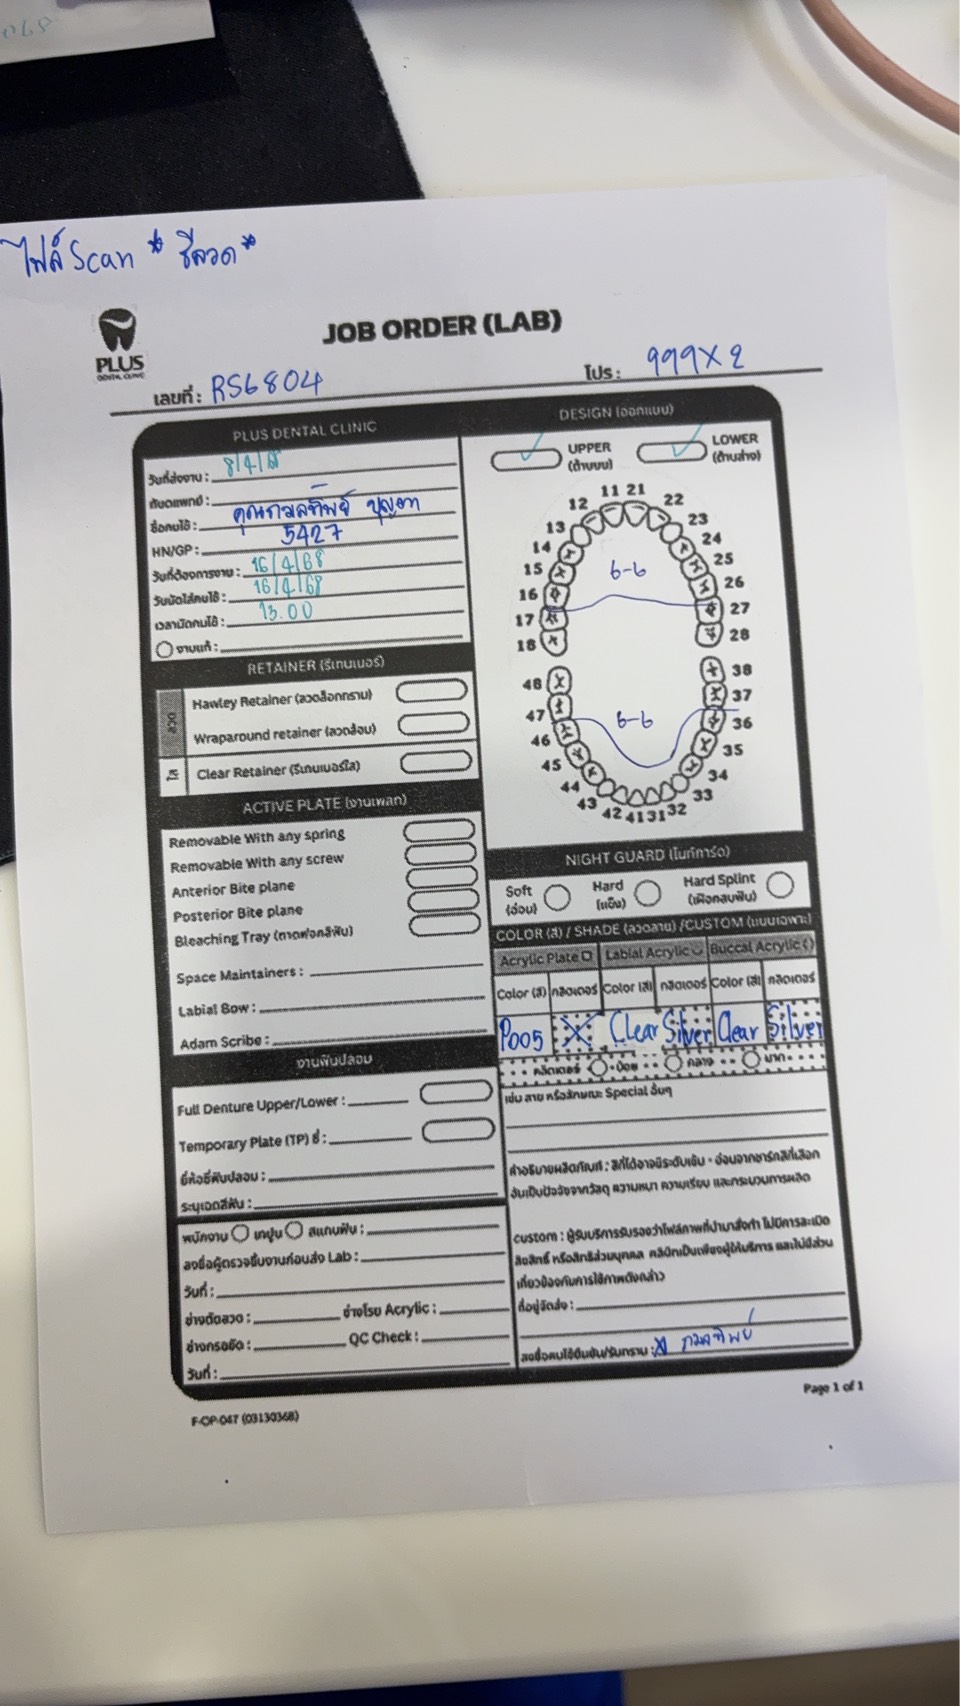 ไฟล์ Scan * รีลวด *
PLUS
DENTAL CLINIC
JOB ORDER (LAB)
เลขที่ : RS6804
โปร : 999X2
PLUS DENTAL CLINIC
วันที่ส่งงาน : 8/4/68
ทันตแพทย์ : -
ชื่อคนไข้ : คุณกมลทิพย์
HN/GP : 5427
วันที่ต้องการงาน : 16/4/68
วันนัดใส่คนไข้ : 16/4/68
เวลานัดคนไข้ : 13.00
งานแก้ :
RETAINER (รีเทนเนอร์)
Hawley Retainer (ลวดล็อกกราม)
Wraparound retainer (ลวดอ้อม)
Clear Retainer (รีเทนเนอร์ใส)
ACTIVE PLATE (งานเพลท)
Removable With any spring
Removable With any screw
Anterior Bite plane
Posterior Bite plane
Bleaching Tray (ถาดฟอกสีฟัน)
Space Maintainers :
Labial Bow :
Adam Scribe :
งานฟันปลอม
Full Denture Upper/Lower :
Temporary Plate (TP) ซี่ :
ยี่ห้อซี่ฟันปลอม :
ระบุเฉดสีฟัน :
พนักงาน เทปูน สแกนฟัน :
ลงชื่อผู้ตรวจชิ้นงานก่อนส่ง Lab :
วันที่ :
ช่างดัดลวด : ช่างโรย Acrylic :
ช่างกรอขัด : QC Check :
วันที่ :
DESIGN (ออกแบบ)
UPPER
(ด้านบน)
LOWER
(ด้านล่าง)
11 21
12 22
13 23
14 24
15 6-6 25
16 26
17 27
18 28
48 38
47 37
46 6-6 36
45 35
44 34
43 33
42 41 31 32
NIGHT GUARD (ไนท์การ์ด)
Soft
(อ่อน)
Hard
(แข็ง)
Hard Splint
(เฝือกสบฟัน)
COLOR (สี) / SHADE (ลวดลาย) /CUSTOM (แบบเฉพาะ)
Acrylic Plate Labial Acrylic Buccal Acrylic
Color (สี) กลิตเตอร์ Color (สี) กลิตเตอร์ Color (สี) กลิตเตอร์
P005 X Clear Silver Clear Silver
กลิตเตอร์ น้อย กลาง มาก
เช่น ลาย หรือลักษณะ Special อื่นๆ
คำอธิบายผลิตภัณฑ์ : สีที่ได้อาจมีระดับเข้ม - อ่อนจากชาร์ทสีที่เลือก
อันเป็นปัจจัยจากวัสดุ ความหนา ความเรียบ และกระบวนการผลิต
custom : ผู้รับบริการรับรองว่าไฟล์ภาพที่นำมาสั่งทำ ไม่มีการละเมิด
ลิขสิทธิ์ หรือสิทธิส่วนบุคคล คลินิกเป็นเพียงผู้ให้บริการ และไม่มีส่วน
เกี่ยวข้องกับการใช้ภาพดังกล่าว
ที่อยู่จัดส่ง :
ลงชื่อคนไข้ยืนยัน/รับทราบ : X กมลทิพย์
F-OP-047 (03130368)
Page 1 of 1